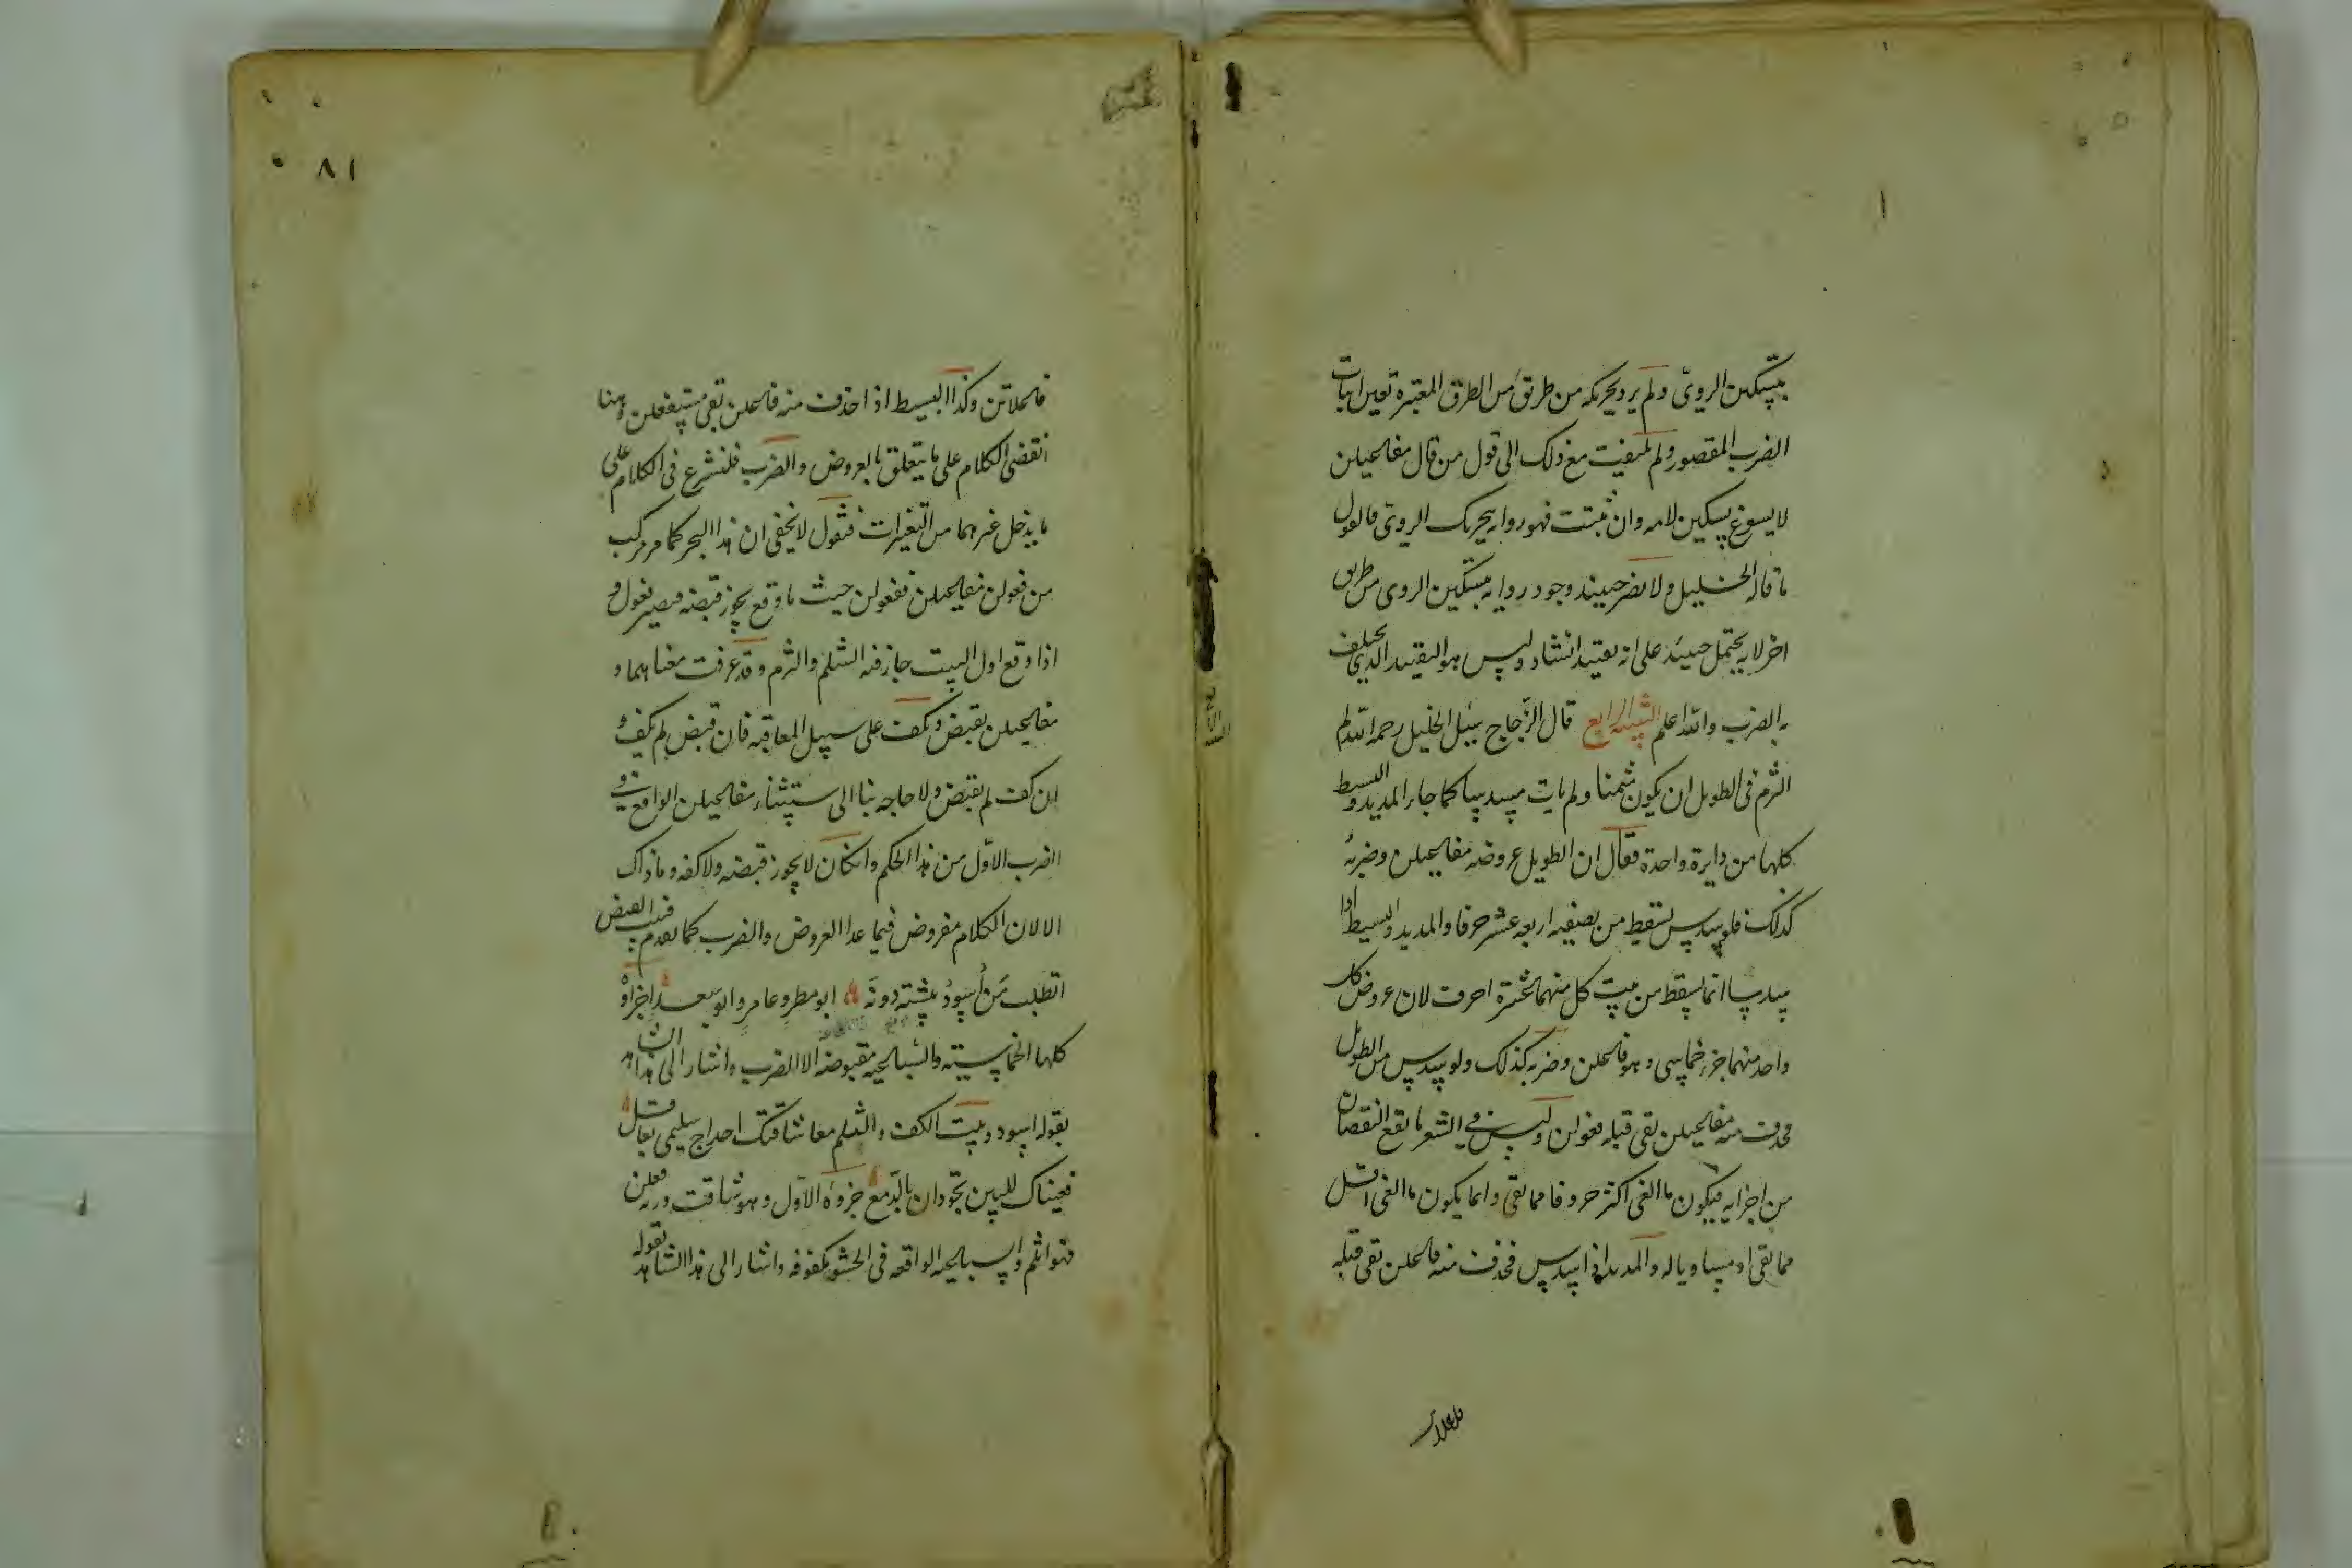 بتسكين الروي ولم يرد تحريكه من طريق من الطرق المعتبرة تعين اثبات
الضرب المقصور ولم يلتفت مع ذلك الى قول من قال مفاعيلن
لا يسوغ تسكين لامه وان ثبتت فهو روايه بتحريك الروي فالقول
ما قاله الخليل ولا يضر حينئذ وجود روايه بتسكين الروي من طريق
اخر لانه يحتمل حينئذ على انه تقييد انشاد وليس هو التقييد الذي يختلف
به الضرب والله اعلم التنبيه الرابع قال الزجاج سئل الخليل رحمه الله لم
الثرم في الطويل ان يكون مثمنا ولم يات مسدسا كما جاء المديد والبسيط
كلها من دايرة واحدة فقال ان الطويل عروضه مفاعيلن وضربه
كذلك فلو سدس لسقط من نصفيه اربعه عشر حرفا والمديد والبسيط اذا
سدسا انما يسقط من بيت كل منهما عشرة احرف لان عروض كل
واحد منهما جزء خماسي وهو فاعلن وضربه كذلك ولو سدس من الطويل
فحذف منه مفاعيلن بقى قبله فعولن وليس في الشعر ما يقع النقصان
من اجزايه فيكون ما القى اكثر حروفا مما بقى وانما يكون ما القى اقل
مما بقى او مساويا له والمديد اذا سدس فحذف منه فاعلن بقى قبله
فاعلاتن
٨١
فاعلاتن وكذا البسيط اذا حذفت منه فاعلن بقى مستفعلن وهنا
انقضى الكلام على ما يتعلق بالعروض والضرب فلنشرع في الكلام على
ما يدخل غيرهما من التغيرات فنقول لا يخفى ان هذا البحر كما مر مركب
من فعولن مفاعيلن ففعولن حيث ما وقع يجوز قبضه فيصير فعول و
اذا وقع اول البيت جاز فيه الثلم والثرم وقد عرفت معناهما و
مفاعيلن يقبض ويكف على سبيل المعاقبه فان قبض لم يكف و
ان كف لم يقبض ولا حاجه بنا الى استثناء مفاعيلن الواقع في
الضرب الاول من هذا الحكم وان كان لا يجوز قبضه ولا كفه وما ذاك
الا لان الكلام مفروض فيما عدا العروض والضرب كما تقدم فبيت القبض
اتطلب من اسود بيشة دونه ابو مطر وعامر وابو سعد اجزاوه
كلها الخماسيته والسباعيه مقبوضه الا الضرب واشار الى هذا الشاهد
بقوله اسود وبيت الكف والثلم معا شاقتك احداج سليمى بعاقل
فعيناك للبين تجودان بالدمع جزوه الاول وهو شاقت وزنه فعلن
فهو اثلم والسباعيه الواقعه في الحشو مكفوفه واشار الى هذا الشاهد بقوله